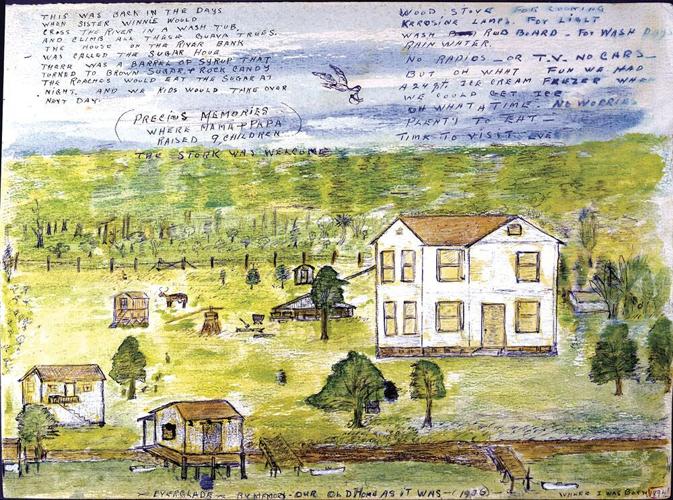 THIS WAS BACK IN THE DAYS
WHEN SISTER WINNIE WOULD
CROSS THE RIVER IN A WASH TUB,
AND CLIMB ALL THESE GUAVA TREES.
THE HOUSE ON THE RIVER BANK
WAS CALLED THE SUGAR HOUR
THERE WAS A BARREL OF SYRUP THAT
TURNED TO BROWN SUGAR, & ROCK CANDY
THE ROACHES WOULD EAT THE SUGAR AT
NIGHT. AND WE KIDS WOULD TAKE OVER
NEXT DAY.
PRECIOUS MEMORIES
WHERE MAMA & PAPA
RAISED 9, CHILDREN
THE STORK WAS WELCOME
WOOD STOVE FOR COOKING
KEROSINE LAMPS. FOR LIGHT
WASH RUB BOARD - FOR WASH DAYS
RAIN WATER.
NO RADIOS - OR T.V. NO CARS
BUT OH WHAT FUN WE HAD
A 24 QT. ICE CREAM FREZER WHEN
WE COULD GET ICE
OH WHAT A TIME. NO WORRIES
PLENTY TO EAT -
TIME TO VISIT
- EVERGLADE - BY MEMORY - OUR OLD HOME AS IT WAS - (1906) - WHERE I WAS BORN